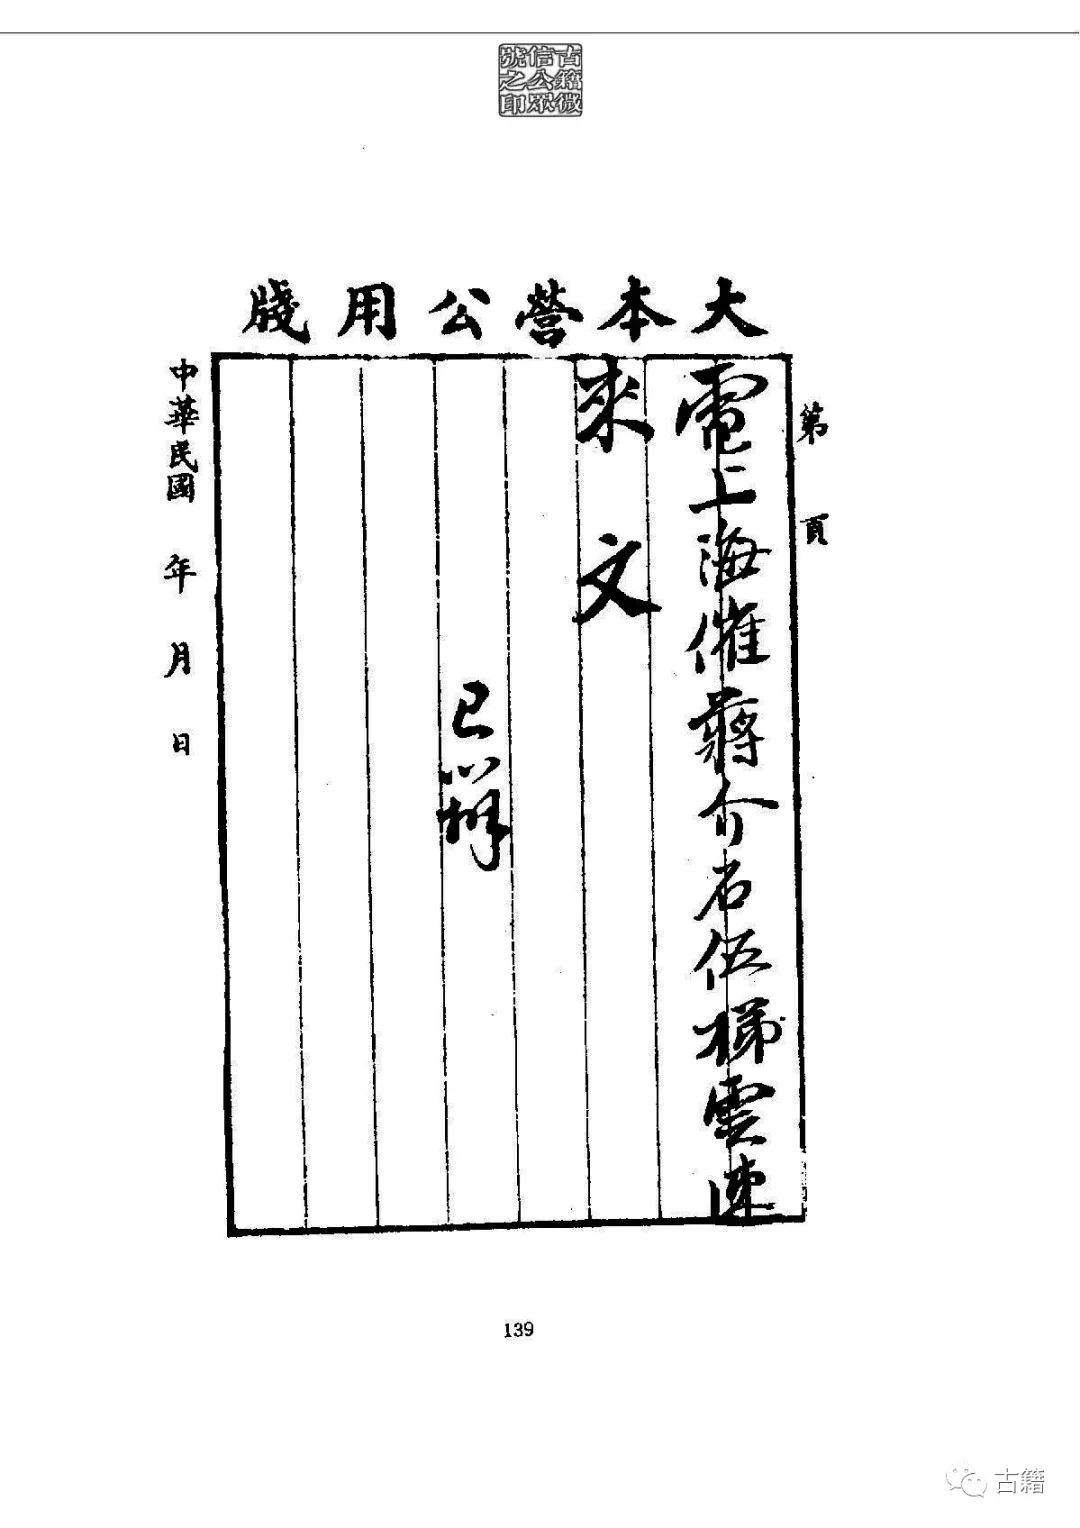 古籍微
信公眾
號之印
大本營公用牋
第 頁
電上海催蔣介石伍梯雲速
來 文
已
中華民國 年 月 日
139
古籍